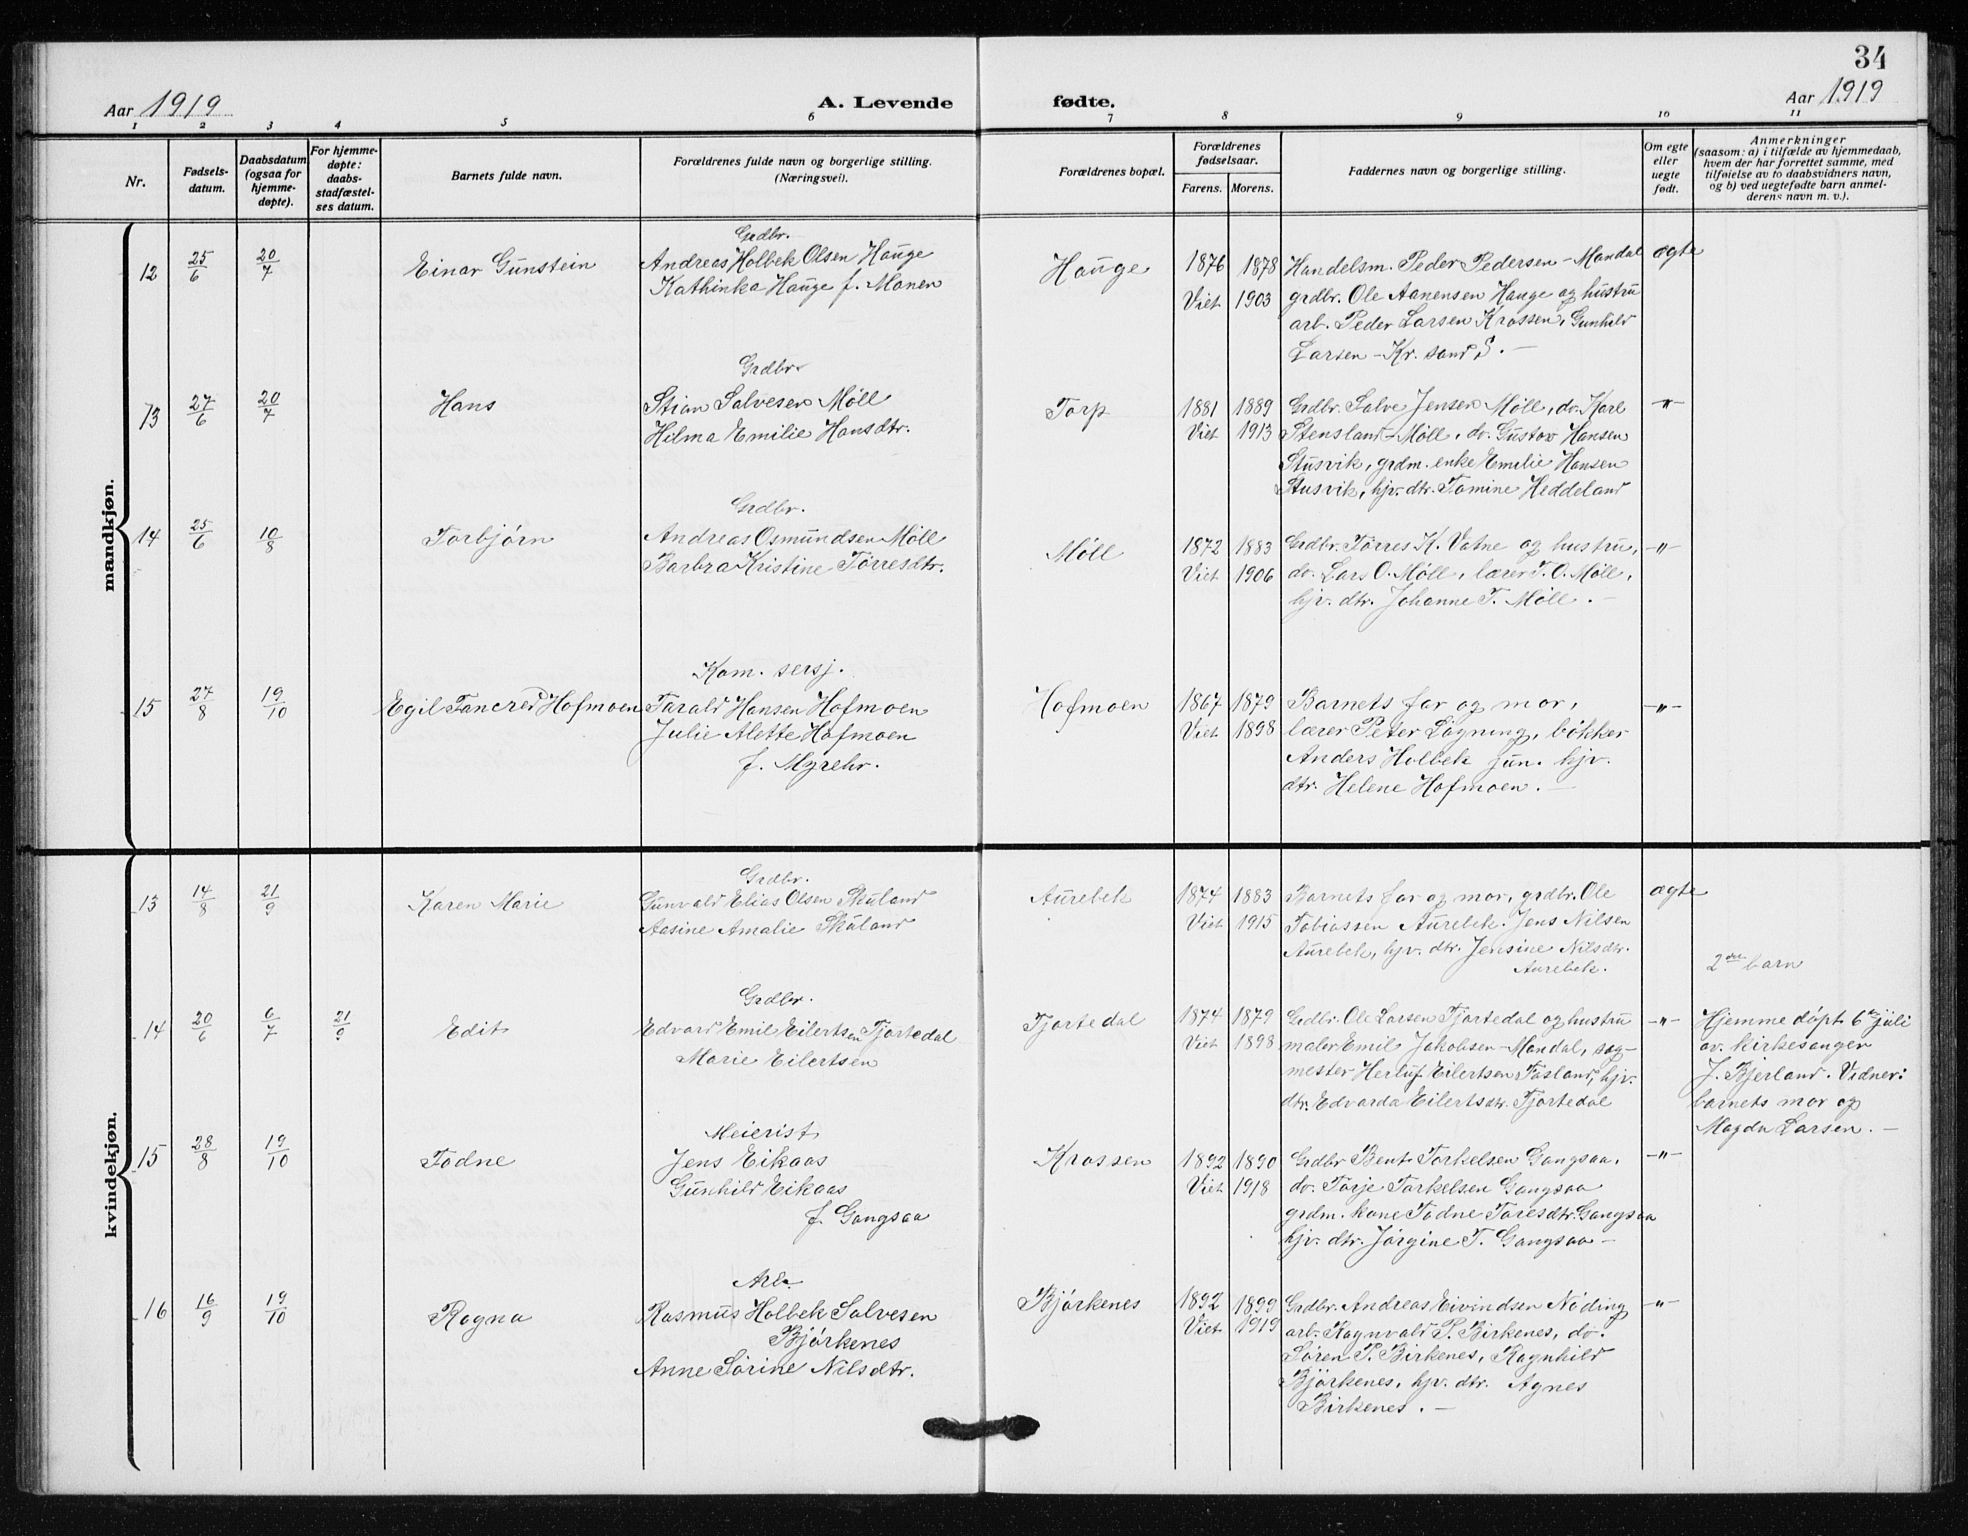 34
Aar 1919
A. Levende fødte.
Aar 1919
1 2 3 4 5 6 7 8 9 10 11
Nr.
Fødsels-
datum.
Daabsdatum
(ogsaa for
hjemme-
døpte).
For hjemme-
døpte:
daabs-
stadfæstel-
ses datum.
Barnets fulde navn.
Forældrenes fulde navn og borgerlige stilling.
(Næringsvei).
Forældrenes bopæl.
Forældrenes
fødselsaar.
Farens. Morens.
Faddernes navn og borgerlige stilling.
Om egte
eller
uegte
født.
Anmerkninger
(saasom: a) i tilfælde av hjemmedaab,
hvem der har forrettet samme, med
tilføielse av to daabsvidners navn,
og b) ved uegtefødte barn anmel-
derens navn m. v.).
mandkjøn.
12
25/6
20/7
Einar Gunstein
Grdbr.
Andreas Holbek Olsen Hauge
Kathinka Hauge f. Monen
Hauge
1876 1878
Viet 1903
Handelsm. Peder Pedersen - Mandal
grdbr. Ole Aanensen Hauge og hustru
arb. Peder Larsen Krossen, Gunhild
Larsen - Kr. sand S. -
ægte
13
27/6
20/7
Hans
Grdbr.
Stian Salvesen Møll
Hilma Emilie Hansdtr.
Torp
1881 1889
Viet 1913
Grdbr. Salve Jensen Møll, do. Karl
Stensland - Møll, do. Gustav Hansen
Stusvik, grdm. enke Emilie Hansen
Stusvik, hjv. dtr. Tomine Heddeland
-"-
14
25/6
10/8
Torbjørn
Grdbr.
Andreas Osmundsen Møll
Barbra Kristine Tørresdtr.
Møll
1872 1883
Viet 1906
Grdbr. Tørres K. Vatne og hustru,
do. Lars O. Møll, lærer T. O. Møll,
hjv. dtr. Johanne T. Møll. -
-"-
15
27/8
19/10
Egil Tancred Hofmoen
Kom. sersj.
Tarald Hansen Hofmoen
Julie Alette Hofmoen
f. Myrehr.
Hofmoen
1867 1879
Viet 1898
Barnets far og mor,
lærer Peter Løgning, bøkker
Anders Holbek jun. hjv.
dtr. Helene Hofmoen. -
-"-
kvindekjøn.
13
14/8
21/9
Karen Marie
Grdbr.
Gunvald Elias Olsen Skuland
Aasine Amalie Skuland
Aurebek
1874 1883
Viet 1915
Barnets far og mor, grdbr. Ole
Tobiassen Aurebek. Jens Nilsen
Aurebek, hjv. dtr. Jensine Nilsdtr.
Aurebek.
ægte
14
20/6
6/7
21/9
Edit
Grdbr.
Edvard Emil Eilertsen Tjortedal
Marie Eilertsen
Tjortedal
1874 1879
Viet 1898
Grdbr. Ole Larsen Tjortedal og hustru
maler Emil Jakobsen - Mandal, sag-
mester Herluf Eilertsen Fasland, hjv.
dtr. Edvarda Eilertsdtr. Tjortedal
-"-
2det barn
Hjemmedøpt 6te juli
av. kirkesanger
J. Bjerland. Vidner:
barnets mor og
Magda Larsen. -
15
28/8
19/10
Todne
Meierist
Jens Eikaas
Gunhild Eikaas
f. Gangsaa
Krossen
1892 1890
Viet 1918
Grdbr Bent Torkelsen Gangsaa,
do. Torje Torkelsen Gangsaa
grdm. kone Todne Toresdtr. Gangsaa
hjv. dtr. Jørgine T. Gangsaa -
-"-
16
16/9
19/10
Ragna
Arb.
Rasmus Holbek Salvesen
Bjørkenes
Anne Sørine Nilsdtr.
Bjørkenes
1892 1899
Viet 1919
Grdbr. Andreas Eivindsen Nøding
arb. Ragnvald P. Birkenes, do.
Søren P. Birkenes, Ragnhild
Bjørkenes, hjv. dtr. Agnes
Birkenes. -
-"-